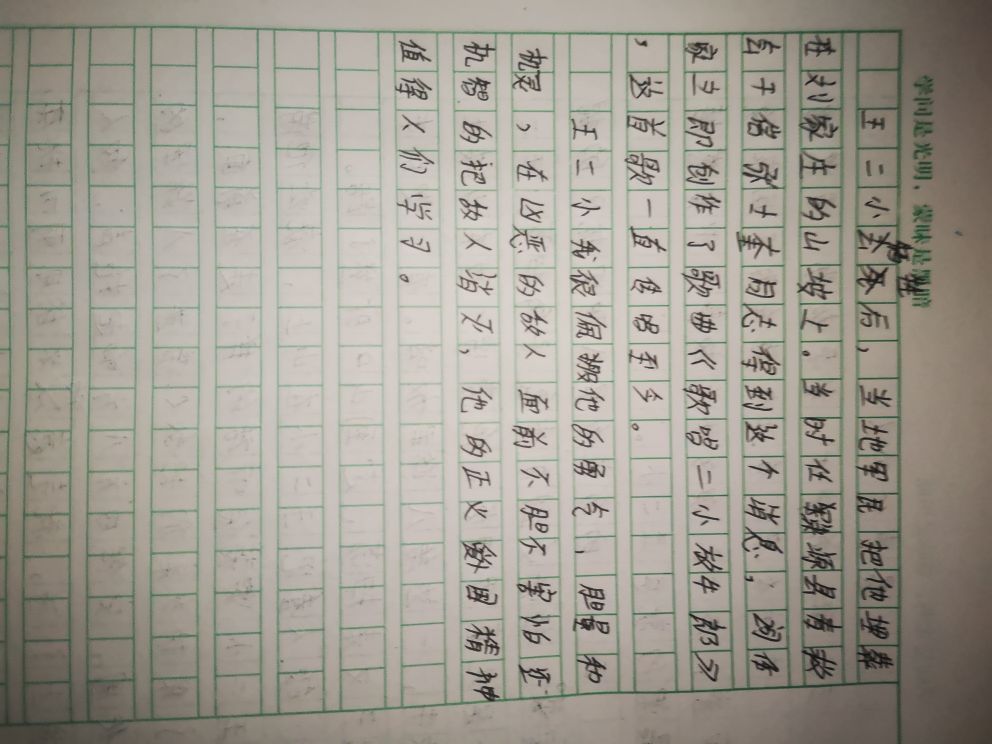 学问是光明，蒙昧是黑暗
王二小牺牲后，当地军民把他埋葬
在刘家庄的山坡上。当时任涞源县青救
会干部张士奎同志得到这个消息，词作
家立即创作了歌曲《歌唱二小放牛郎》
，这首歌一直传唱至今。
王二小我很佩服他的勇气、胆量和
机灵，在凶恶的敌人面前不胆不害怕还
机智的把敌人消灭，他的正义爱国精神
值得人们学习。